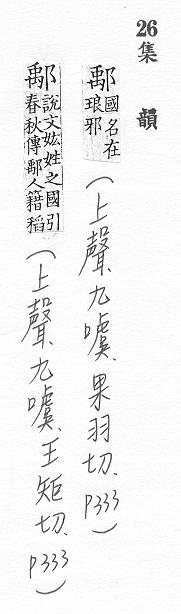 26集韻
鄅國名在琅邪(上聲、九噳、果羽切、P333)
鄅說文妘姓之國引春秋傳鄅人籍稻(上聲、九噳、王矩切、P333)